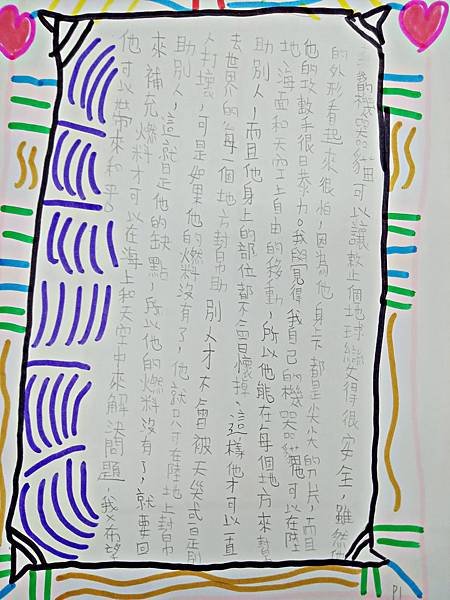 我的機器貓可以讓整個地球變得很安全，雖然他
的外形看起來很怕，因為他身 都是尖尖的刀片，而且
他的攻擊手很暴力。我 覺得我自己的機器貓 可以在陸
地、海面和天空上自由的移動，所以他能在每個地方來幫
助別人，而且他身上的部位都不會壞掉，這樣他才可以一直
去世界的每一個地方幫助別人才不會被天災或是別
人打壞，可是如果他的燃料沒有了，他就只可在陸地上幫
助別人，這就是他的缺點，所以他的燃料沒有了，就要回
來補充燃料才可以在海上和天空中來解決問題，我 希望
他可以帶來和平。
P1